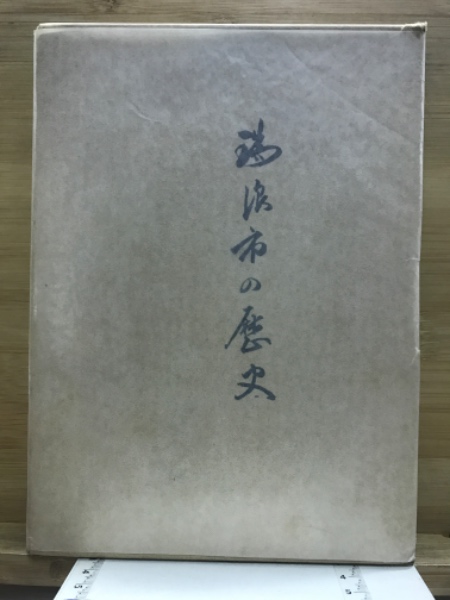 瑞浪市の歴史